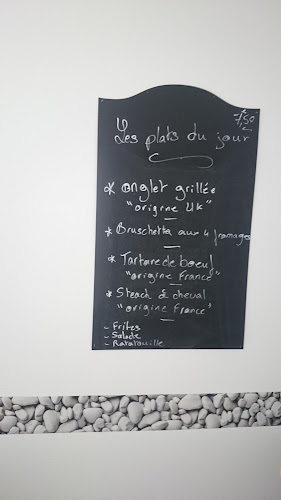 7,50
€
Les plats du jour
* onglet grillée
"origine UK"
* Bruschetta aux 4 fromages
* Tartare de boeuf
"origine France"
* Steack de cheval
"origine France"
- Frites
- Salade
- Ratatouille